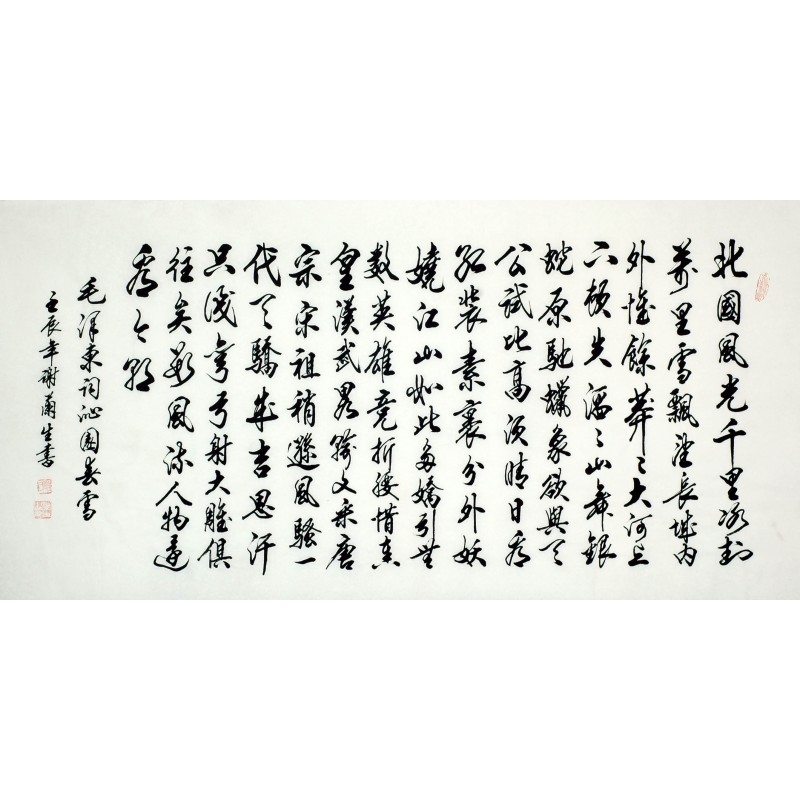 北國風光千里冰封
萬里雪飄望長城內
外惟餘莽々大河上
下頓失滔々山舞銀
蛇原馳蠟象欲與天
公試比高須晴日看
紅裝素裹分外妖
嬈江山如此多嬌引無
數英雄競折腰惜秦
皇漢武略輸文采唐
宗宋祖稍遜風騷一
代天驕成吉思汗
只識彎弓射大雕俱
往矣數風流人物還
看今朝
毛澤東詞沁園春雪
壬辰年謝蘭生書